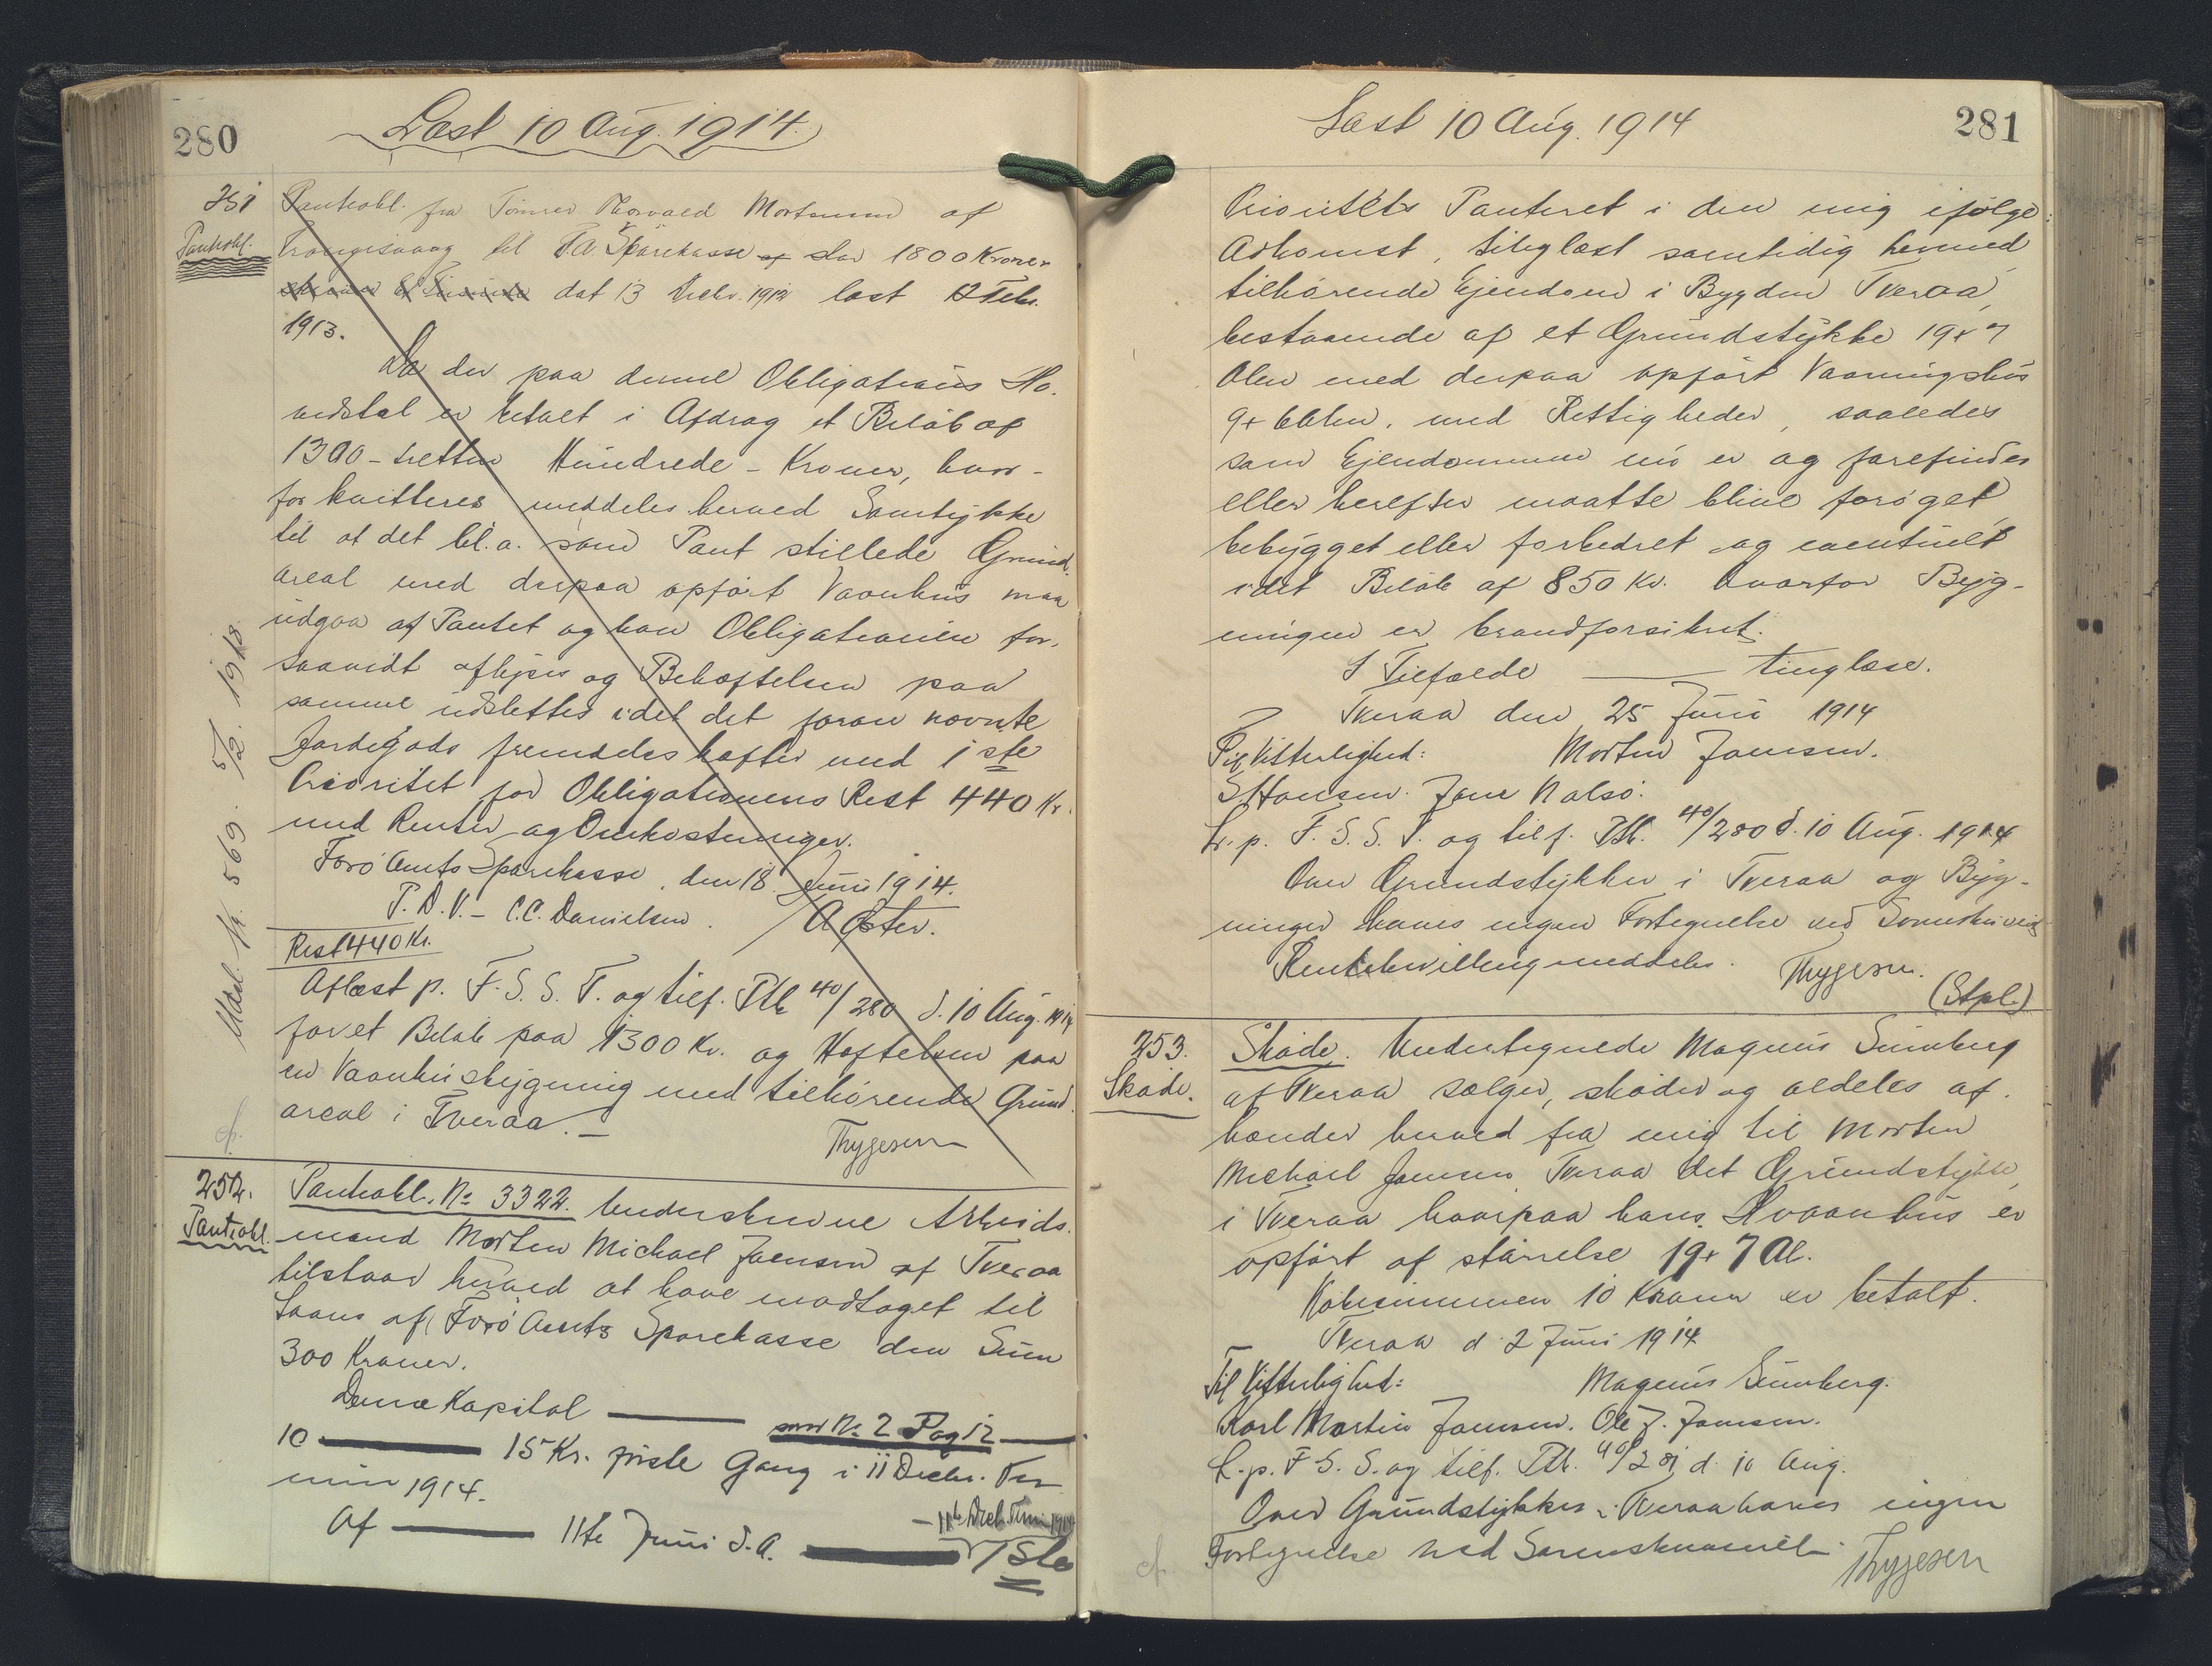 280
Læst 10 Aug. 1914.
251
Pantobl.
Pantobl. fra Tømrer Thorvald Mortensen af
Trangisvaag til F. A. Sparekasse stor 1800 Kroner
dat 13 Decbr. 1912 læst 12 Febr.
1913.
Da der paa denne Obligations Ho-
vedstol er betalt i Afdrag et Beløb af
1300 - tretten Hundrede - Kroner, hvor-
for kvitteres meddeles herved Samtykke
til at det bl. a. som Pant stillede Grund-
areal med derpaa opført Vaanhus maa
udgaa af Pantet og kan Obligationen for-
saavidt aflyses og Behæftelsen paa
samme udslettes idet det foran nævnte
Jordegods fremdeles hæfter med 1ste
Prioritet for Obligationens Rest 440 Kr.
med Renter og Omkostninger.
Færø Amts Sparekasse, den 18. Juni 1914.
P. D. V. - C. C. Danielsen. A Øster.
Rest 440 Kr.
Aflæst p. F. S. S. T. og tilf. Ptb 40/280 d. 10 Aug. 1914
for et Beløb paa 1300 Kr. og Hæftelsen paa
en Vaanhusbygning med tilhørende Grund-
areal i Tveraa. -
Thygesen
Udsl. Nr. 569. 5/2. 1918.
252.
Pantobl.
Pantobl. No 3322. Underskrevne Arbeids-
mand Morten Michael Joensen af Tveraa
tilstaar herved at have modtaget til
Laans af Færø Amts Sparekasse den Sum
300 Kroner.
Denne Kapital ——— som No 2 Pag 12 ———
10 ——— 15 Kr. første Gang i 11 Decbr. Ter
min 1914.
- 11te Decb. Termin 1914
Af ——— 11te Juni d. A. ——— 1ste
Læst 10 Aug. 1914
281
Prioritets Panteret i den mig ifølge
Adkomst, tinglæst samtidig hermed
tilhørende Ejendom i Bygden Tveraa,
bestaaende af et Grundstykke 19 x 7
Alen med derpaa opført Vaaningshus
9 x 6 Alen, med Rettigheder, saaledes
som Ejendommen nu er og forefindes
eller herefter maatte blive forøget,
bebygget eller forbedret og eventuelt
i det Beløb af 850 Kr. hvorfor Byg-
ningen er brandforsikret.
I Tilfælde ——— tinglæse.
Tveraa den 25 Juni 1914
Til Vitterlighed: Morten Joensen.
S Hansen. Jane Nalsø.
L. p. F. S. S. T. og tilf. Ptb. 40/280 d. 10 Aug. 1914
Over Grundstykker i Tveraa og Byg-
ninger haves ingen Fortegnelse ved Sorenskriveriet
Rentebevilling meddeles. Thygesen.
(Stpl.)
253.
Skøde.
Skøde. Undertegnede Magnus Sumberg
af Tveraa sælger, skøder og aldeles af-
hænder herved fra mig til Morten
Michael Joensen, Tveraa det Grundstykke
i Tveraa hvorpaa hans Vaanhus er
opført af størrelse 19 x 7 Al.
Købesummen 10 Kroner er betalt.
Tveraa d. 2 Juni 1914
Til Vitterlighed: Magnus Sumberg.
Karl Martin Joensen. Ole J. Joensen.
L. p. F. S. S. og tilf. Ptb. 40/281 d. 10 Aug.
Over Grundstykker i Tveraa haves ingen
Fortegnelse ved Sorenskriveriet.
Thygesen